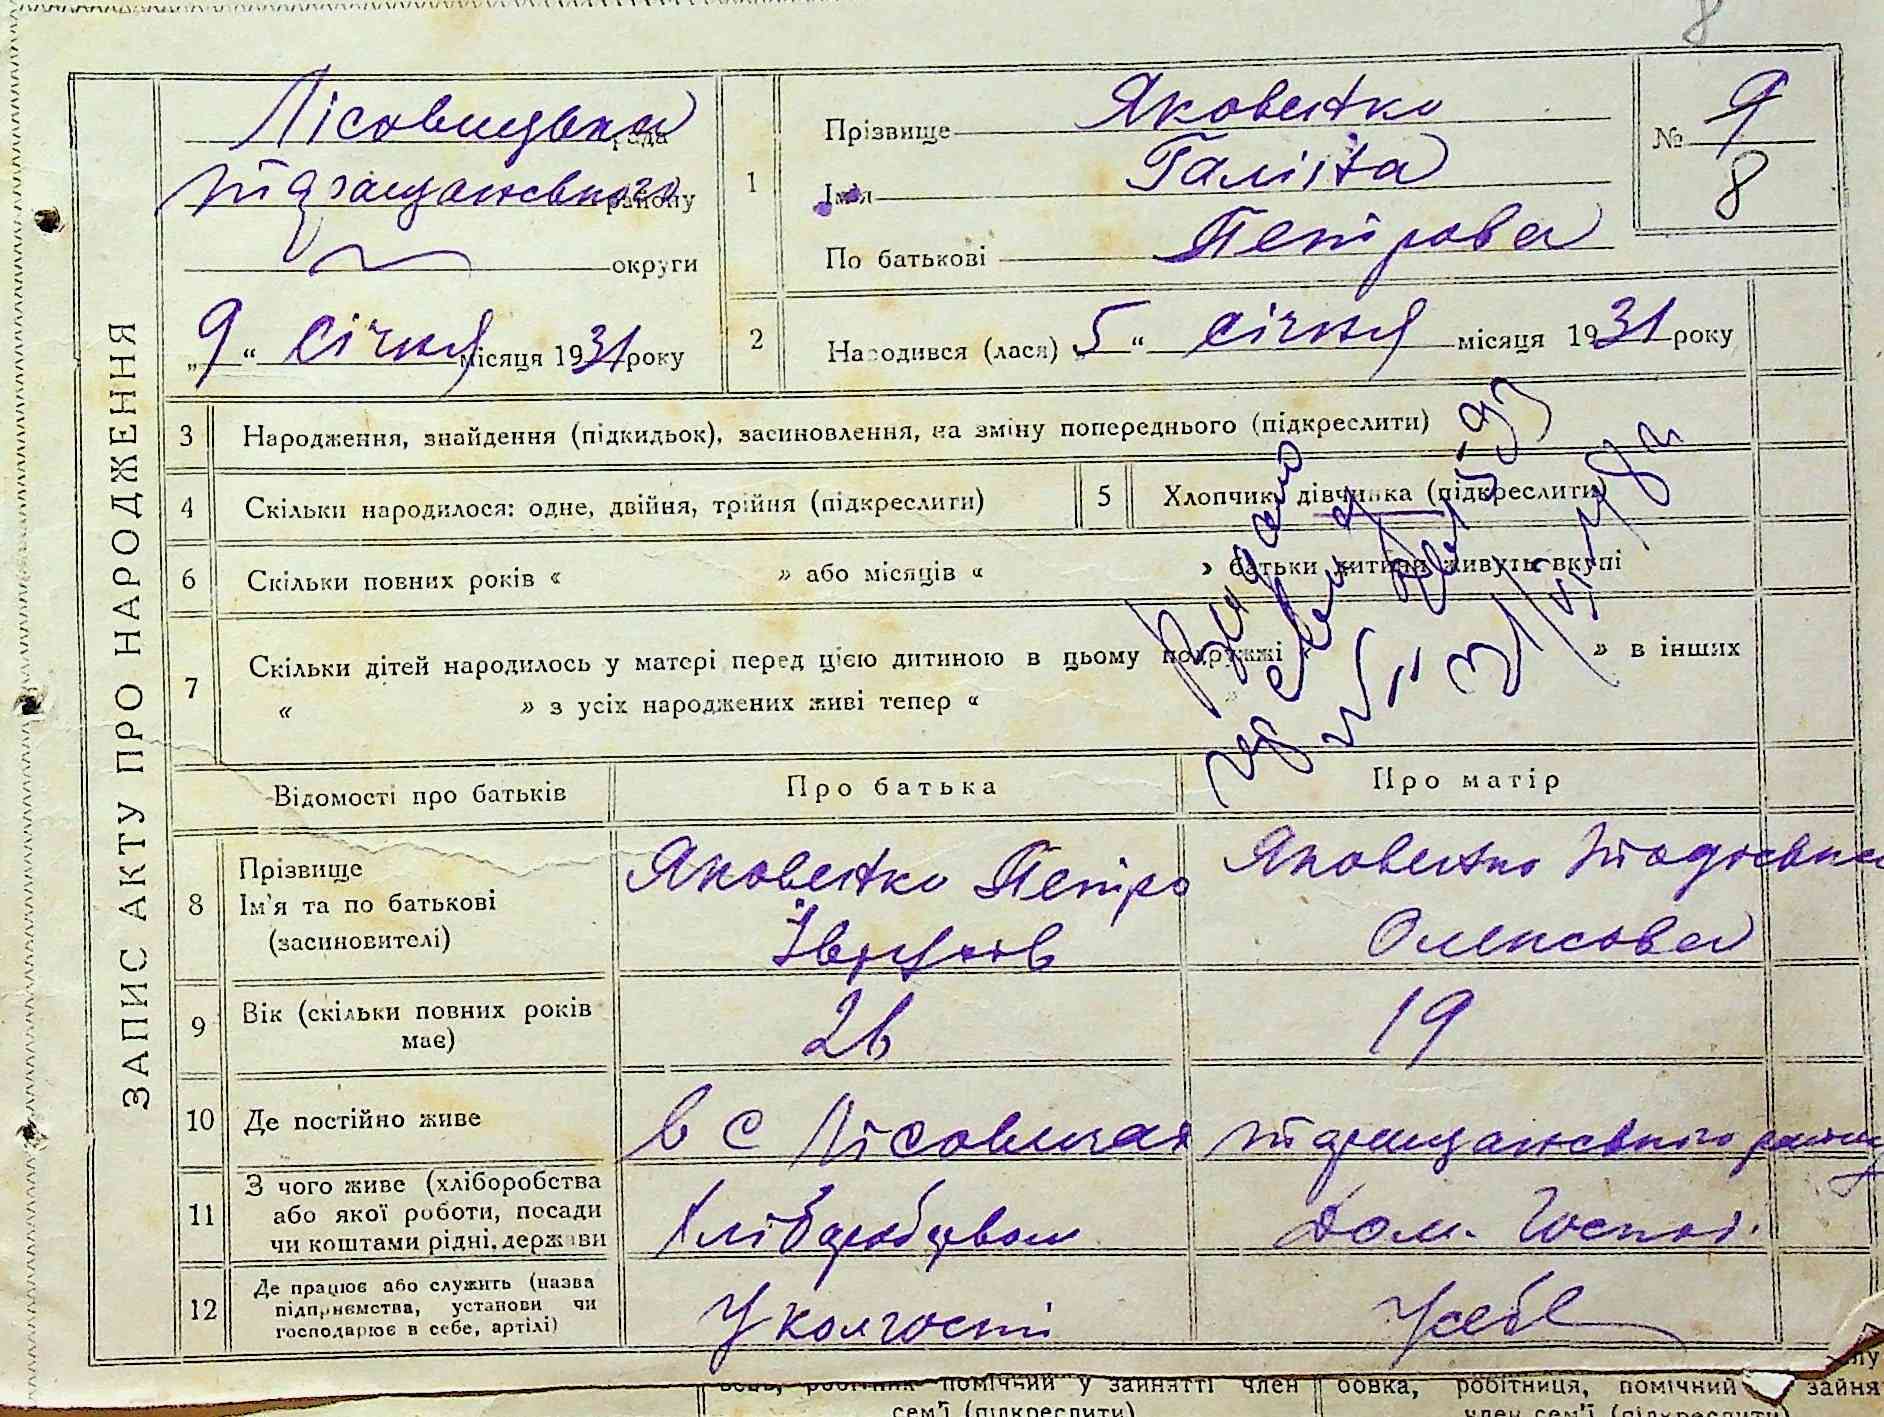 8
ЗАПИС АКТУ ПРО НАРОДЖЕННЯ
Лісовицька рада
Таращанського району
округи
„9“ січня місяця 1931 року
1
Прізвище Яковенко
Ім'я Галина
По батькові Петрова
№ 9
8
2
Народився (лася) „5“ січня місяця 1931 року
3 Народження, знайдення (підкидьок), засиновлення, на зміну попереднього (підкреслити)
4 Скільки народилося: одне, двійня, трійня (підкреслити)
5 Хлопчик, дівчинка (підкреслити)
6 Скільки повних років « » або місяців « » батьки дитини живуть вкупі
7 Скільки дітей народилось у матері перед цією дитиною в цьому подружжі « » в інших
« » з усіх народжених живі тепер «
Видано
Відомості про батьків
Про батька
Про матір
8 Прізвище
Ім'я та по батькові
(засиновителі)
Яковенко Петро
Яковенко
Олексова
9 Вік (скільки повних років має)
26
19
10 Де постійно живе
в с Лісовичах Таращанського району
11 З чого живе (хліборобства
або якої роботи, посади
чи коштами рідні, держави
Хліборобством
Дом. Господ.
12 Де працює або служить (назва
підприємства, установи чи
господарює в себе, артілі)
У колгоспі
У себе
робітник помічний у занятті член
сем'ї (підкреслити)
робітниця, помічний
член сем'ї (підкреслити)